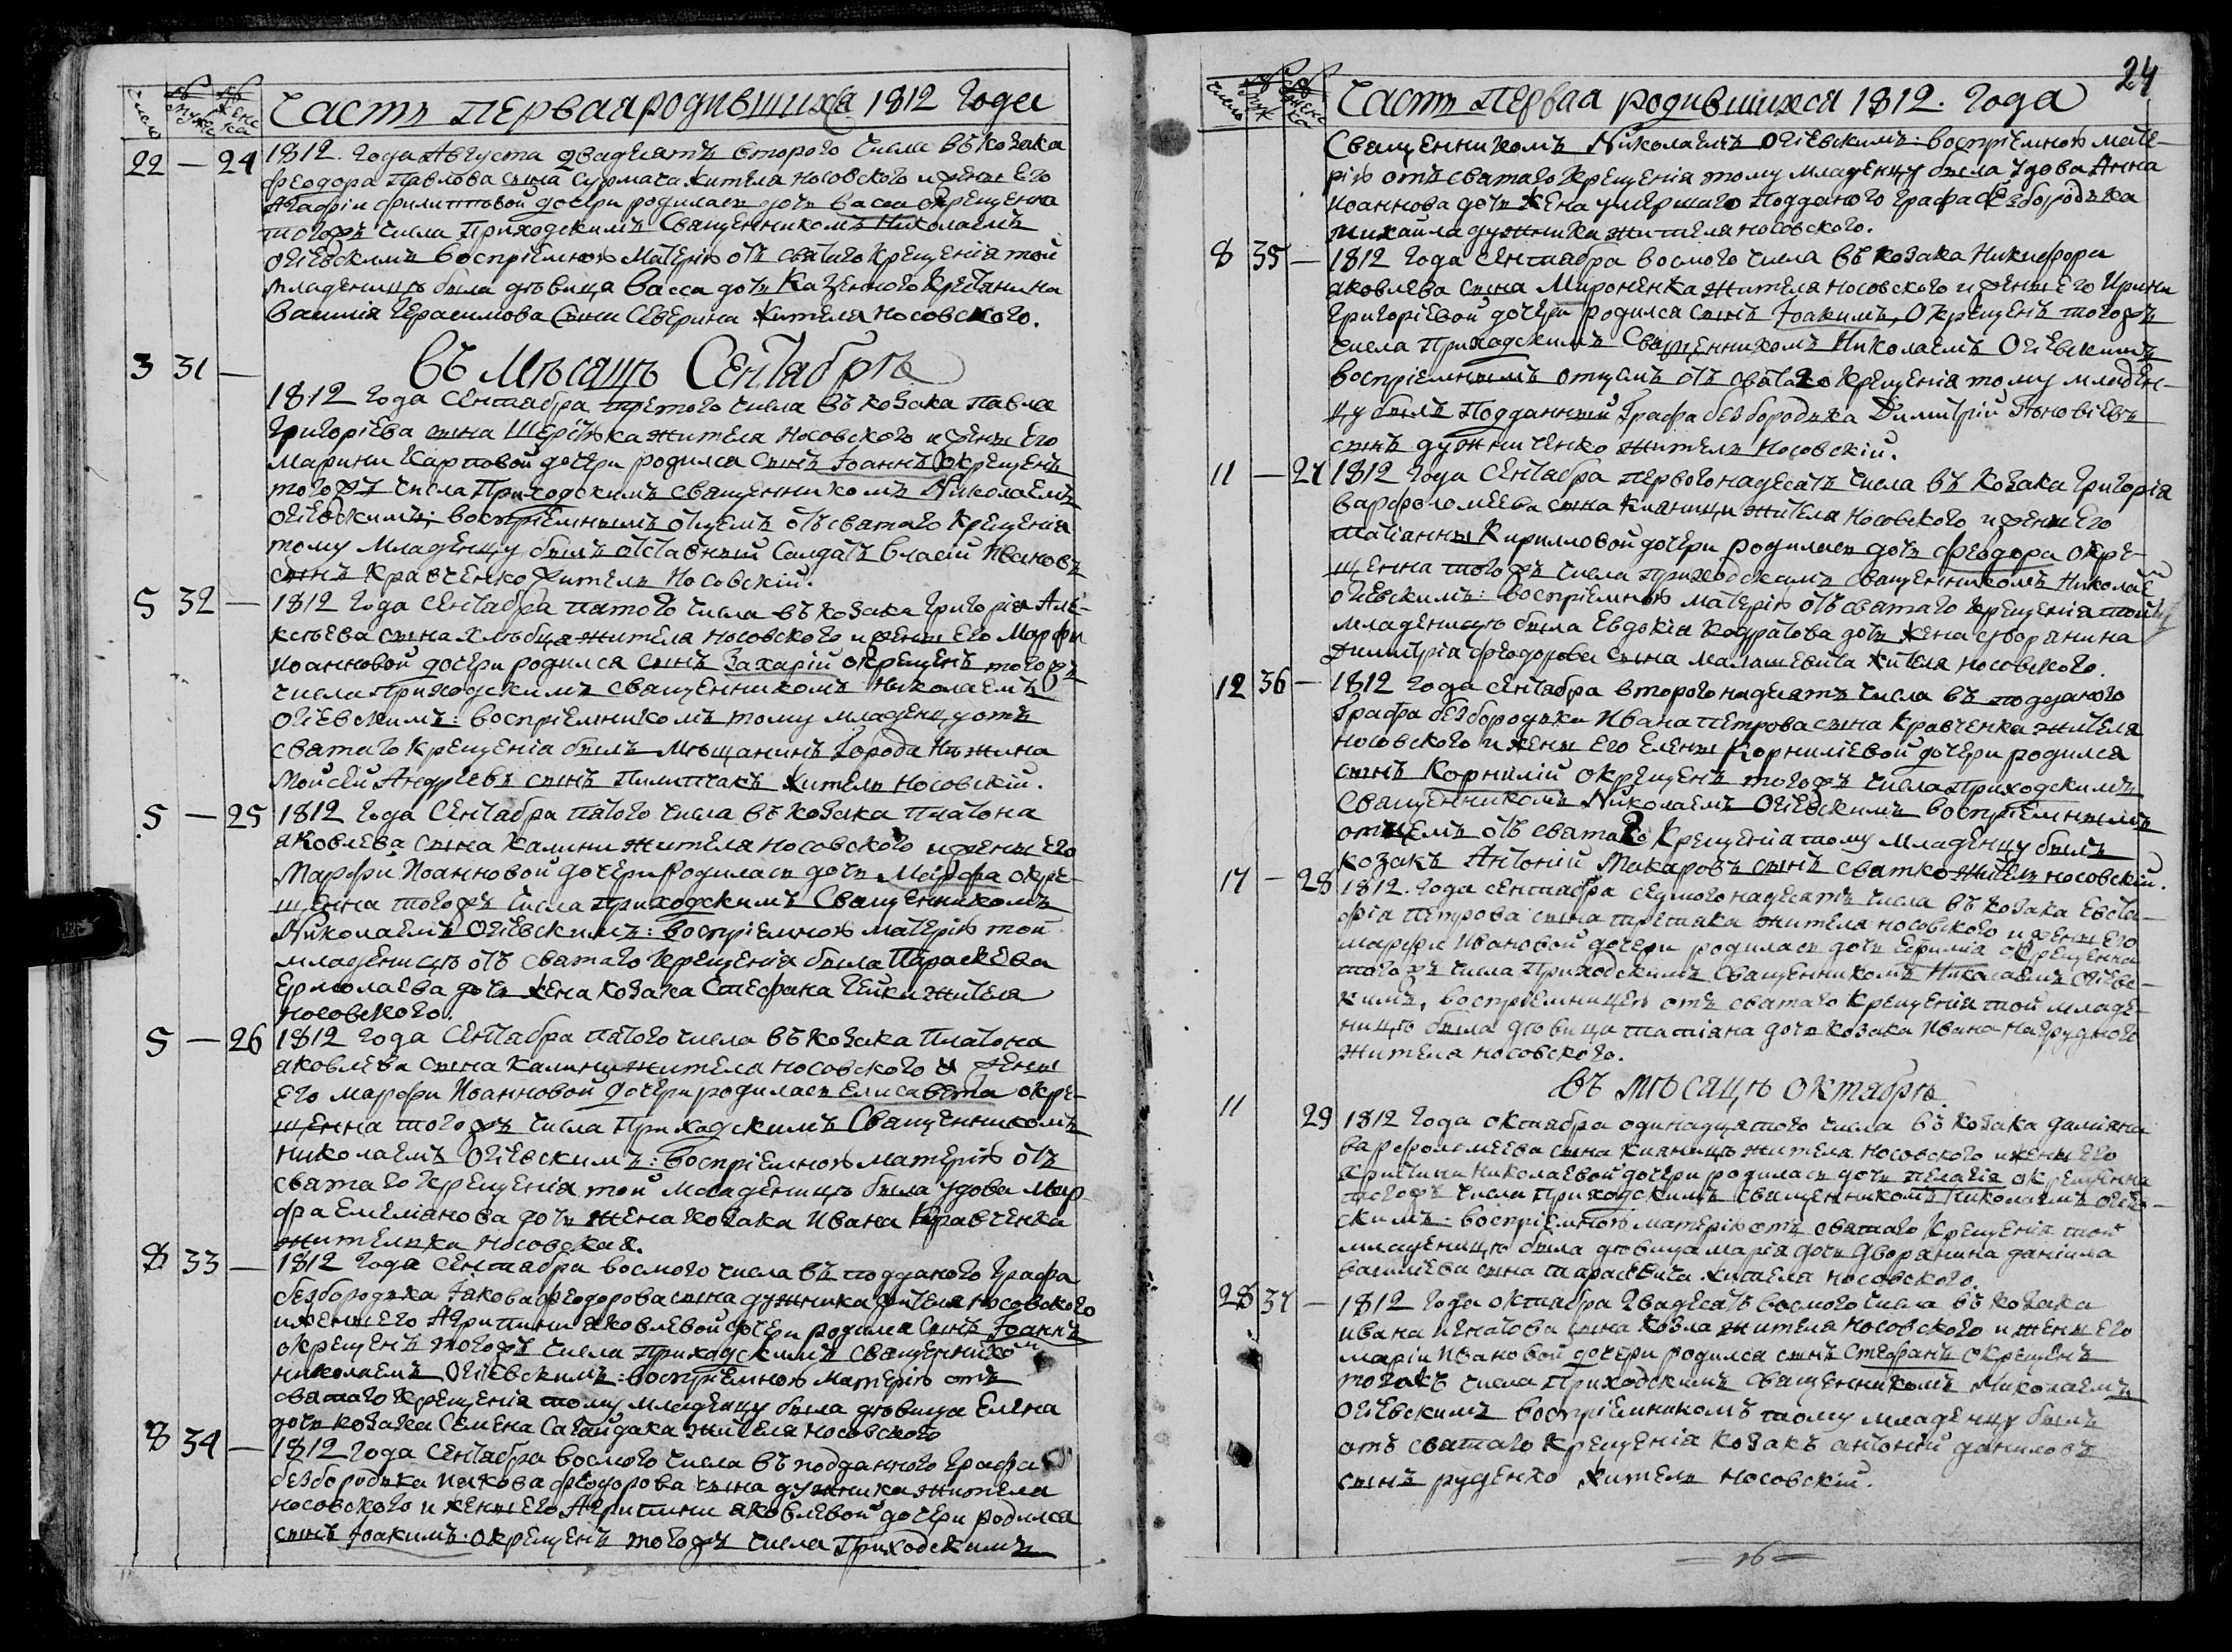 число муж женска
Часть первая родившихся 1812 года
22 — 24 1812. года Августа двадцять второго числа въ козака
Феодора Павлова сына Сурмача жителя носовского и жены Его
Агафіи филипповой дочери родилась дочь васса окрещенна
тогожъ числа Приходскимъ Священникомъ Николаемъ
Огіевскимъ воспріемною Матерію отъ святаго крещенія той
младеницѣ была дѣвица Васса дочь Казенного Крестянина
Василія Герасимова Сына Северина жителя носовского.
Въ Мѣсяцѣ Сентябрѣ
3 31 — 1812 года Сентября третого числа въ козака Павла
Григоріева сына Шерстюка жителя носовского и жены Его
Марини Карповой дочери родился Сынъ Іоаннъ Окрещенъ
тогожъ числа Приходскимъ священникомъ Николаемъ
Огіевскимъ; воспріемнымъ отцемъ отъ святаго Крещенія
тому Младенцу былъ отставный Салдатъ Власій Ивановъ
сынъ Кравченко житель Носовскій.
5 32 — 1812 года Сентября пятого числа въ козака Григорія Але-
ксѣева сына Хлѣбца жителя носовского и жены Его Марфи
Иоанновой дочери родился сынъ Захарій окрещенъ тогожъ
числа приходскимъ священникомъ Николаемъ
Огіевскимъ: воспріемникомъ тому младенцу отъ
святаго крещенія былъ Мѣщанинъ города Нѣжина
Мойсей Андреевъ сынъ Пилипчакъ житель носовскій.
5 — 25 1812 года Сентября пятого числа въ козака Платона
яковлева сына Калини жителя носовского и жены Его
Марфи Иоанновой дочери родилась дочь Марфа окре-
щенна тогожъ числа приходскимъ Священникомъ
Николаемъ Огіевскимъ: воспріемною матерію той
младеницѣ отъ святаго крещенія была Параскева
Ермолаева дочь жена козака Стефана Чейки жителя
носовского.
5 — 26 1812 года Сентября пятого числа въ козака Платона
яковлева сына калини жителя носовского и жены
его марфи Иоанновой дочери родилась Елисавета окре-
щенна тогожъ числа Приходскимъ Священникомъ
николаемъ Огіевскимъ: воспріемною матерію отъ
святаго крещенія той младеницѣ была удова Мар
фа Емеліанова дочь жена козака Ивана Кравченка
жителька носовская.
8 33 — 1812 года Сентября восмого числа въ подданого графа
безбородька Іакова Феодорова сына дужника жителя носовского
и жены его Агрипины яковлевой дочери родился Сынъ Іоаннъ
окрещенъ тогожъ числа приходскимъ священнико
николаемъ Огіевскимъ: воспріемною матерію отъ
святаго крещенія тому младенцу была дѣвица Елена
дочь козака Семена Сагайдака жителя носовского
8 34 — 1812 года Сентября восмого числа въ подданного графа
безбородька Иякова Феодорова сына дужника жителя
носовского и жены Его Агрипини яковлевой дочери родился
сынъ Іоакимъ: окрещенъ тогожъ числа Приходскимъ
24
число муж женска
Часть Первая родившихся 1812. года
Священникомъ Николаемъ Огіевскимъ: воспріемною мате-
рію отъ святаго крещенія тому младенцу была удова Анна
Иоаннова дочь жена умершаго подданого графа безбородька
михаила дужника жителя носовского.
8 35 — 1812 года сентября восмого числа въ козака Никифора
яковлева сына Мироненка жителя носовского и жены Его Ирини
Григоріевой дочери родился сынъ Іоакимъ, Окрещенъ тогожъ
числа Приходскимъ Священникомъ Николаемъ Огіевскимъ
воспріемнымъ отцемъ отъ святаго крещенія тому младен-
цу былъ Подданный Графа безбородька Димитрій
сынъ дужниченко житель носовскій.
11 — 27 1812 года Сентября первогонадесять числа въ козака Григорія
варфоломеева сына кияници жителя носовского и жены Его
татіанны Кирилловой дочери родилась дочь феодора окре-
щенна тогожъ числа приходскимъ священникомъ Николае
огіевскимъ: воспріемною матерію отъ святаго крещенія той
младеницѣ была Евдокія Кодратова дочь жена дворянина
Димитрія Феодорова сына Малашевича жителя носовского.
12 36 — 1812 года сентября второгонадцять числа въ подданого
графа безбородьки Ивана петрова сына Кравченка жителя
носовского и жены Его Елены Корниліевой дочери родился
сынъ Корнилій окрещенъ тогожъ числа приходскимъ
священникомъ Николаемъ Огіевскимъ воспріемнымъ
отцемъ отъ святаго Крещенія тому Младенцу былъ
козакъ Антоній Макаровъ сынъ сватко житель носовскій.
17 — 28 1812. года сентября седмогонадцять числа въ козака Евста-
фія петрова сына третяка жителя носовского и жены Его
марфи Ивановой дочери родилась дочь Ефимія окрещенна
тогожъ числа Приходскимъ священникомъ Николаемъ Огіевс-
кимъ, воспріемницею отъ святаго крещенія той младе-
ницѣ была дѣвица татіана дочь козака Ивана нагрудного
жителя носовского.
Въ мѣсяцѣ октябрѣ.
11 29 1812 года октября одинадцятого числа въ козака даміяна
варфоломеева сына кияници жителя носовского и жены его
христини николаевой дочери родилась дочь пелагія окрещенна
тогожъ числа приходскимъ священникомъ Николаемъ огіев-
скимъ: воспріемною матерію отъ святаго крещенія той
младеницѣ была дѣвица марія дочь дворянина даніила
василіева сына тарасевича жителя носовского.
28 37 — 1812 года октября двадесять восмого числа въ козака
ивана игнатова сына козла жителя носовского и жены его
маріи ивановой дочери родился сынъ Стефанъ окрещенъ
тогожъ числа Приходскимъ священникомъ Николаемъ
Огіевскимъ воспріемникомъ тому младенцу былъ
отъ святаго крещенія козакъ антоній даниловъ
сынъ руденко житель носовскій.
— 16 —